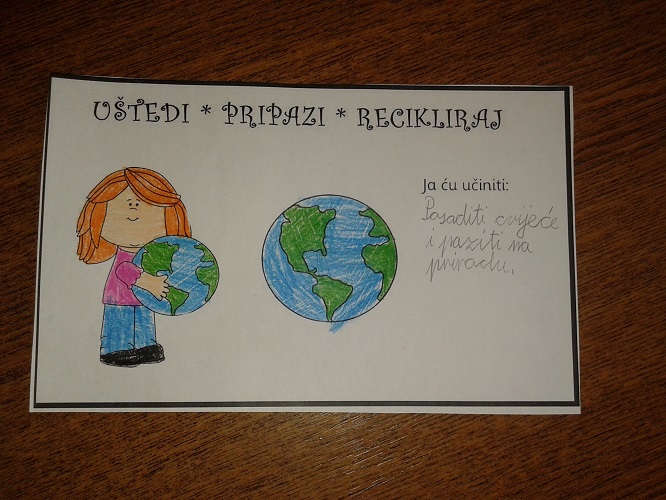 UŠTEDI * PRIPAZI * RECIKLIRAJ
Ja ću učiniti:
Posaditi cvijeće
i paziti na
prirodu.